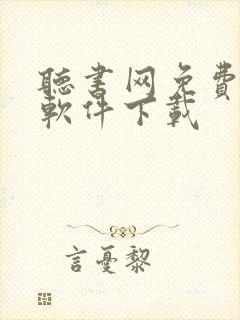 聽書网免費
軟件下載
言憂黎